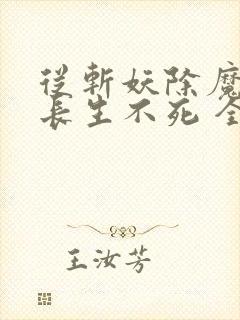 從斬妖除魔
長生不死 全
王汝芳